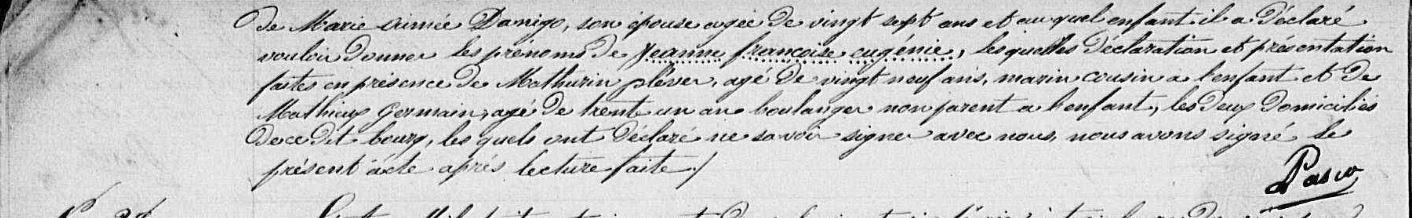 de Marie aimée Danigo, son épouse agée de vingt sept ans et auquel enfant il a déclaré
vouloir donner les prénoms de Jeanne françoise eugénie, lesquelles déclaration et présentation
faites en présence de Mathurin pléver, agé de vingt neuf ans, marin cousin a l'enfant et de
Mathieux Germain, agé de trente un ans boulanger non parent a l'enfant, les deux domiciliés
de ce dit bourg, les quels ont déclaré ne savoir signer avec nous, nous avons signé le
présent acte aprés lecture faite /
Pasco